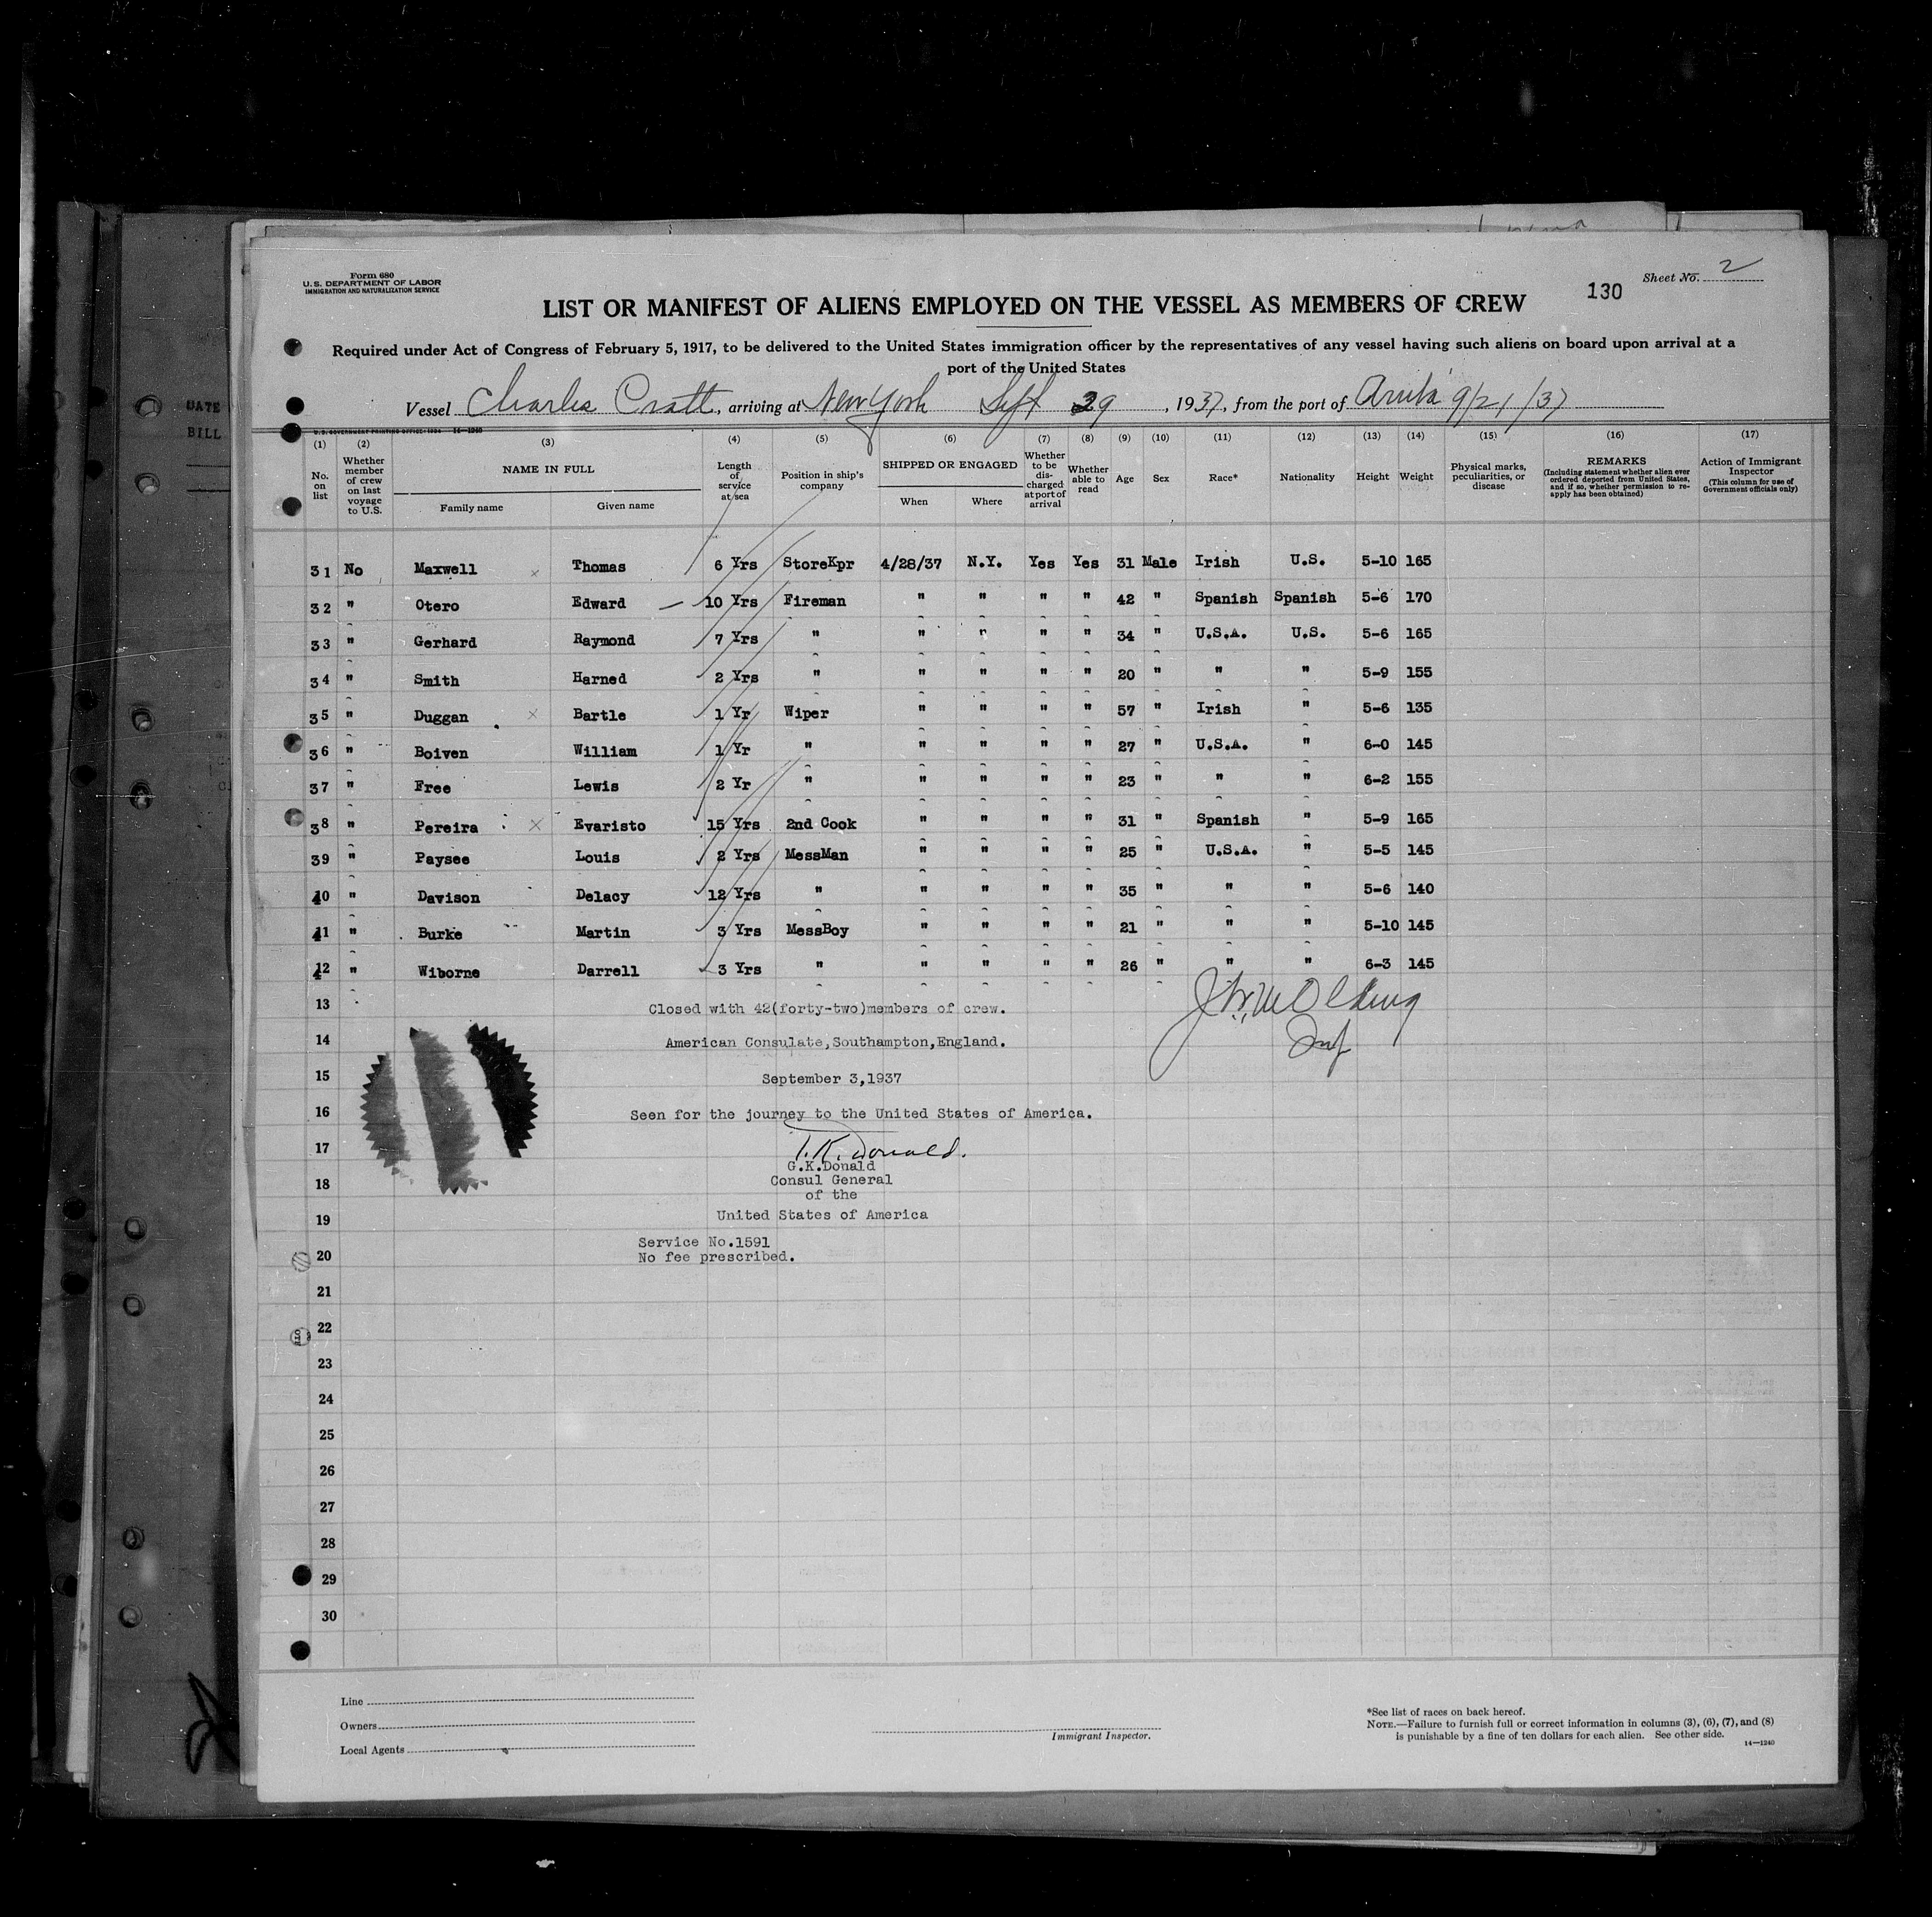 DATE
BILL
Form 680
U.S. DEPARTMENT OF LABOR
IMMIGRATION AND NATURALIZATION SERVICE
Sheet No. 2
130
LIST OR MANIFEST OF ALIENS EMPLOYED ON THE VESSEL AS MEMBERS OF CREW
Required under Act of Congress of February 5, 1917, to be delivered to the United States immigration officer by the representatives of any vessel having such aliens on board upon arrival at a
port of the United States
Vessel Charles Pratt, arriving at New York Sept 29, 1937, from the port of Aruba 9/21/37
U.S. GOVERNMENT PRINTING OFFICE: 1934 14—1240
(1) (2) (3) (4) (5) (6) (7) (8) (9) (10) (11) (12) (13) (14) (15) (16) (17)
No. on list
Whether member of crew on last voyage to U.S.
NAME IN FULL
Family name
Given name
Length of service at sea
Position in ship's company
SHIPPED OR ENGAGED
When
Where
Whether to be discharged at port of arrival
Whether able to read
Age
Sex
Race*
Nationality
Height
Weight
Physical marks, peculiarities, or disease
REMARKS
(Including statement whether alien ever ordered deported from United States, and if so, whether permission to reapply has been obtained)
Action of Immigrant Inspector
(This column for use of Government officials only)
31 No Maxwell x Thomas 6 Yrs StoreKpr 4/28/37 N.Y. Yes Yes 31 Male Irish U.S. 5-10 165
32 " Otero Edward — 10 Yrs Fireman " " " " 42 " Spanish Spanish 5-6 170
33 " Gerhard Raymond 7 Yrs " " " " " 34 " U.S.A. U.S. 5-6 165
34 " Smith Harned 2 Yrs " " " " " 20 " " " 5-9 155
35 " Duggan x Bartle 1 Yr Wiper " " " " 57 " Irish " 5-6 135
36 " Boiven William 1 Yr " " " " " 27 " U.S.A. " 6-0 145
37 " Free Lewis 2 Yr " " " " " 23 " " " 6-2 155
38 " Pereira x Evaristo 15 Yrs 2nd Cook " " " " 31 " Spanish " 5-9 165
39 " Paysee Louis 2 Yrs MessMan " " " " 25 " U.S.A. " 5-5 145
40 " Davison Delacy 12 Yrs " " " " " 35 " " " 5-6 140
41 " Burke Martin 3 Yrs MessBoy " " " " 21 " " " 5-10 145
42 " Wiborne Darrell 3 Yrs " " " " " 26 " " " 6-3 145
13 Closed with 42(forty-two)members of crew.
14 American Consulate,Southampton,England.
15 September 3,1937
16 Seen for the journey to the United States of America.
17
G.K.Donald
18 Consul General
of the
19 United States of America
Service No.1591
20 No fee prescribed.
21
22
23
24
25
26
27
28
29
30
Line
Owners
Local Agents
Immigrant Inspector.
*See list of races on back hereof.
NOTE.—Failure to furnish full or correct information in columns (3), (6), (7), and (8)
is punishable by a fine of ten dollars for each alien. See other side.
14—1240